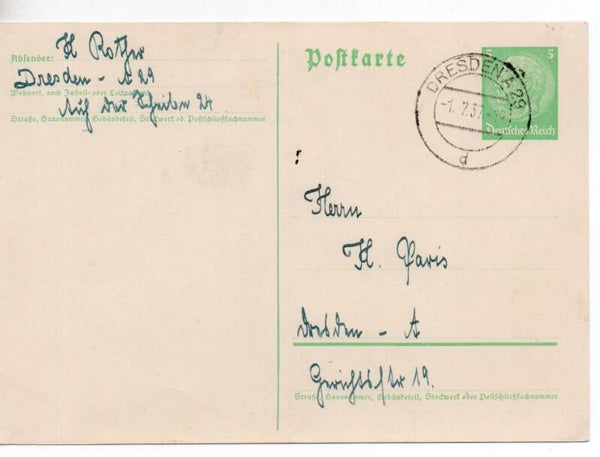 Absender: K Rother
Dresden - A 29
Wohnort, auch Zustell- oder Leitpostamt
Auf der Scheiben 24
Straße, Hausnummer, Gebäudeteil, Stockwerk od. Postschließfachnummer
Postkarte
5 5
Deutsches Reich
DRESDEN A 29
-1. 7.37
d
Herrn
K. Paris
Dresden - A
Gerichtsstr 19.
Straße, Hausnummer, Gebäudeteil, Stockwerk oder Postschließfachnummer